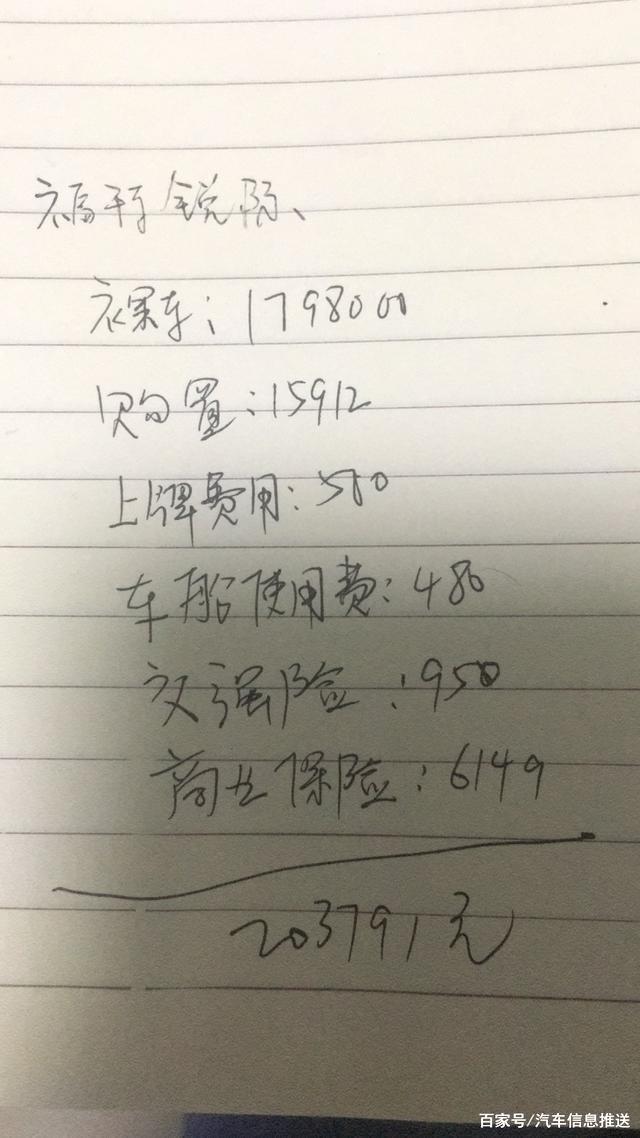 福特锐际、
裸车：179800
购置：15912
上牌费用：500
车船使用费：480
交强险：950
商业保险：6149
203791元
百家号/汽车信息推送